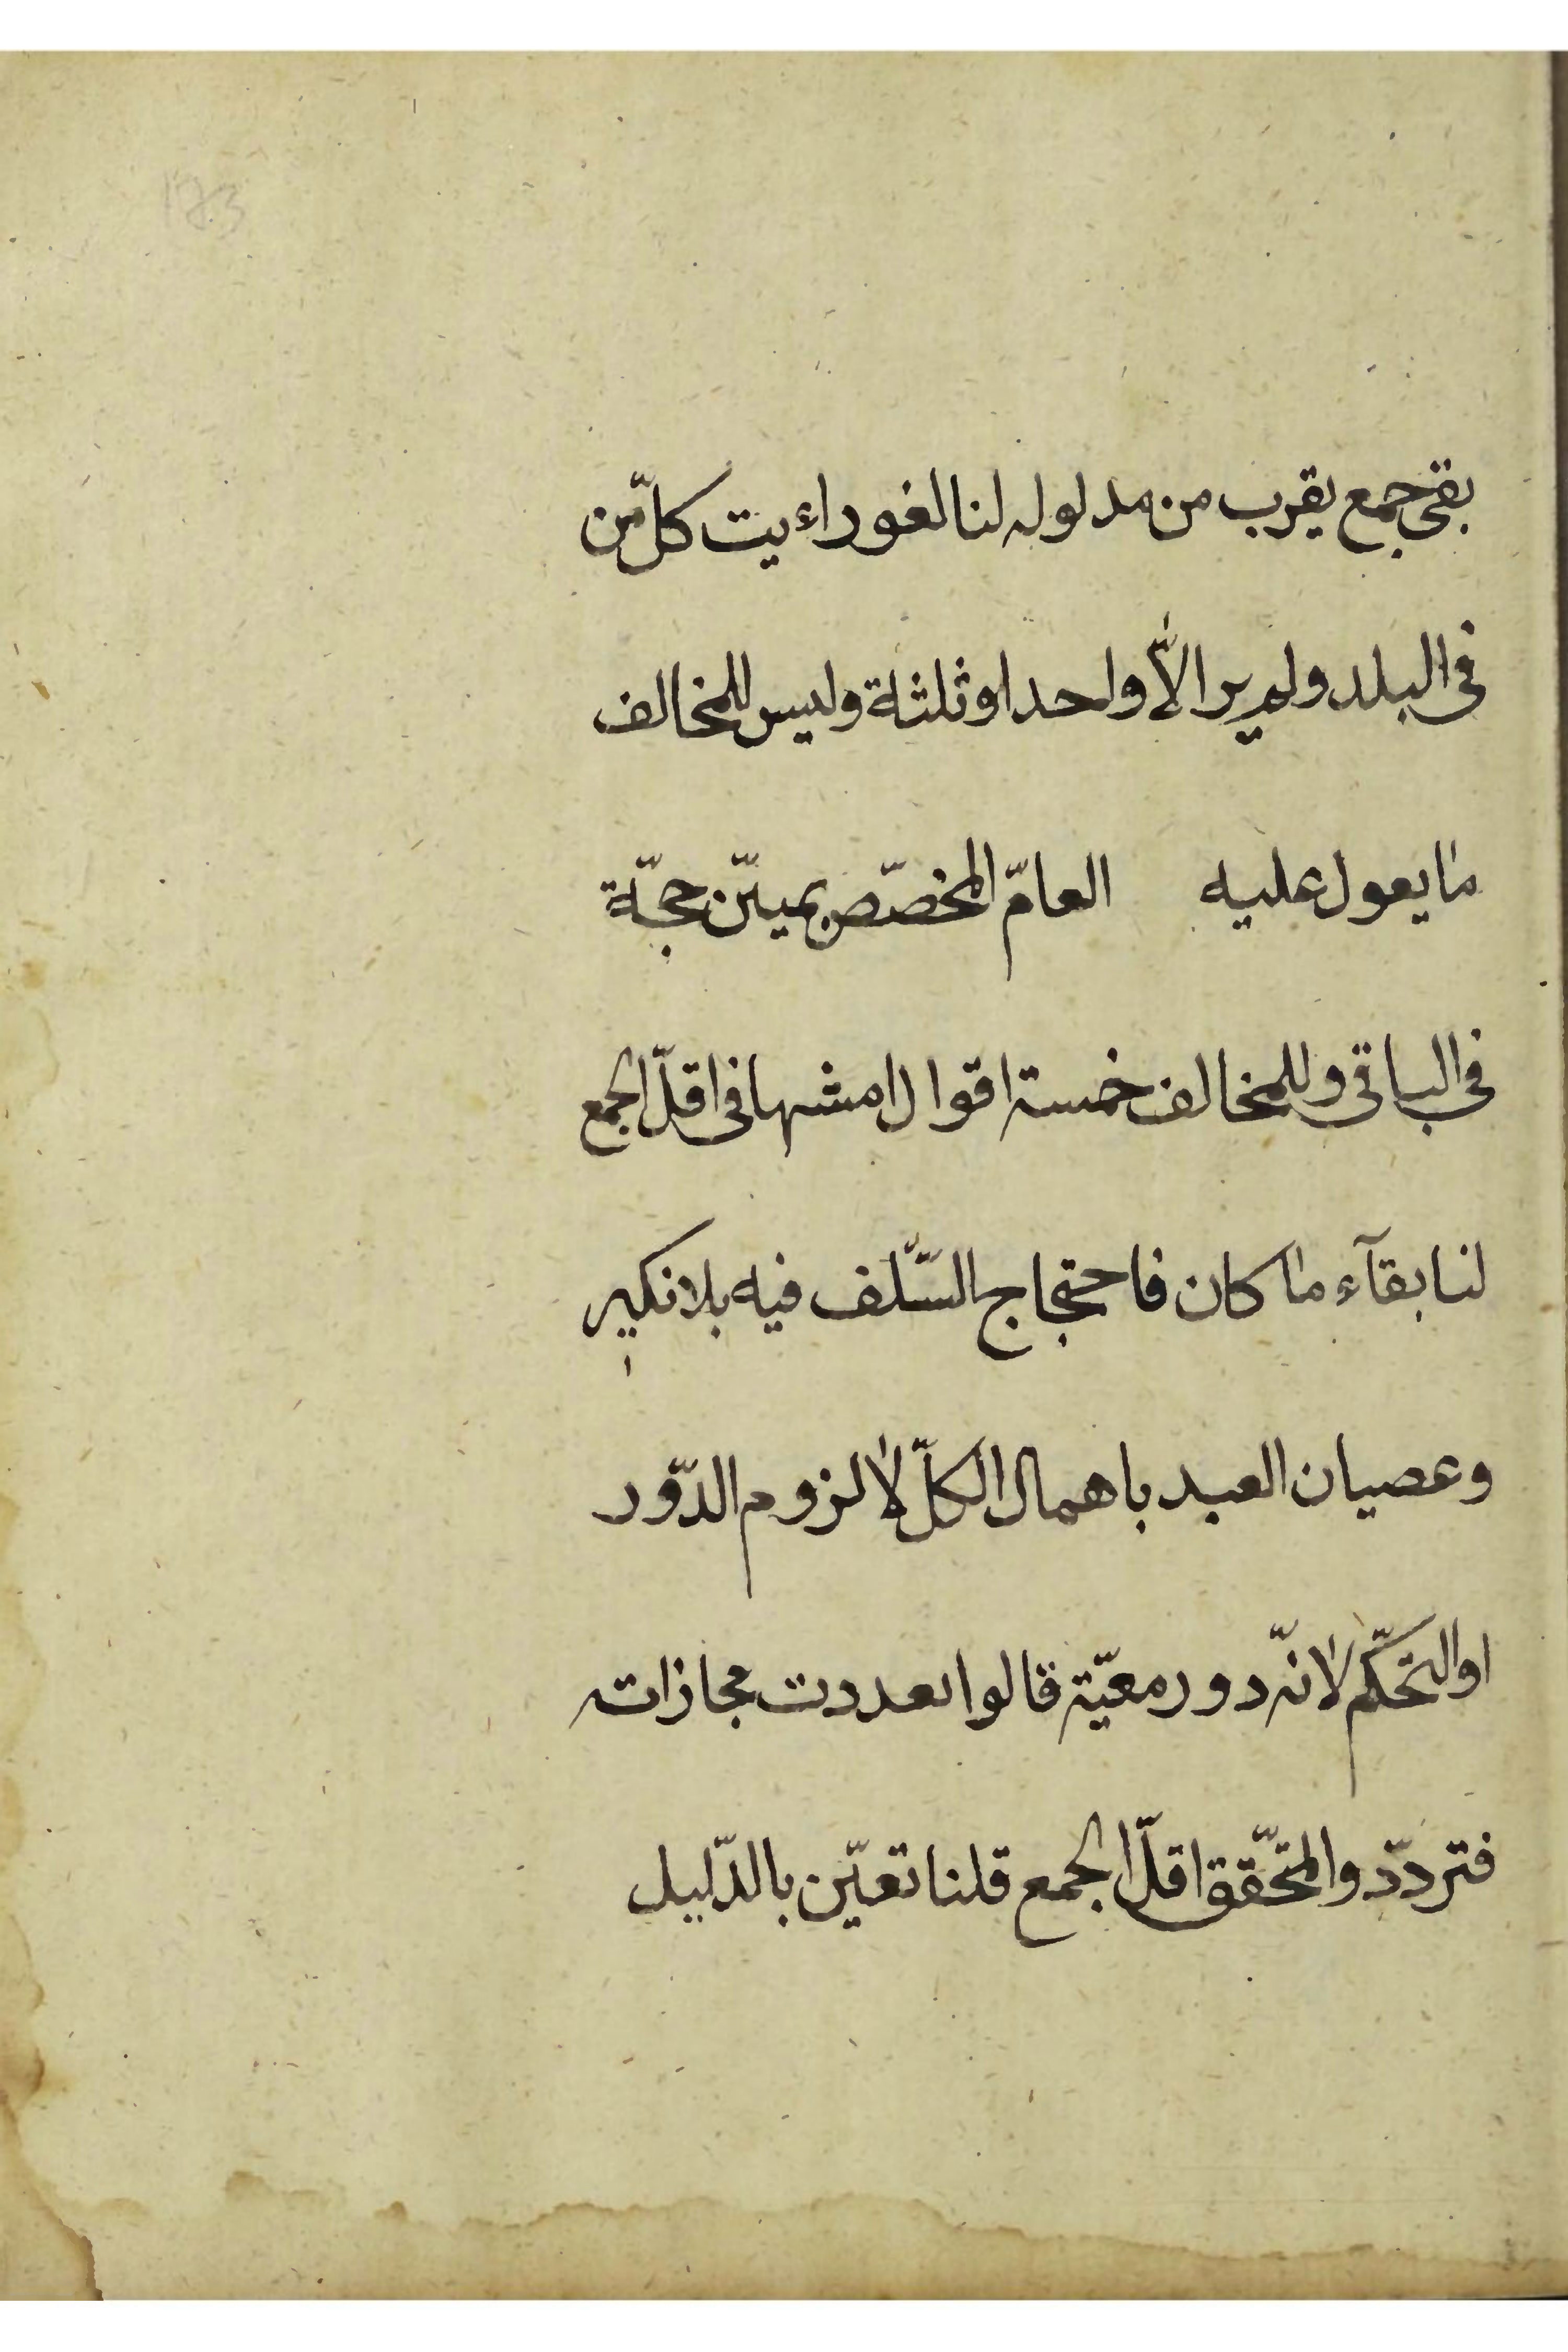 173
بقى جمع يقرب من مدلوله لنا لغو راءيت كلّ من
فى البلد ولم ير الاّ واحدا وثلثة وليس للمخالف
ما يعول عليه العامّ المخصّص بمبيّن حجّة
فى الباقى وللمخالف خمسة اقوال امشها فى اقلّ الجمع
لنا بقآء ما كان فاحتجاج السّلف فيه بلا نكير
وعصيان العبد باهمال الكلّ لا لزوم الدّور
او التحكّم لانّه دور معيّة قالوا تعددت مجازاته
فتردّد والمتحقّق اقلّ الجمع قلنا تعيّن بالدّليل